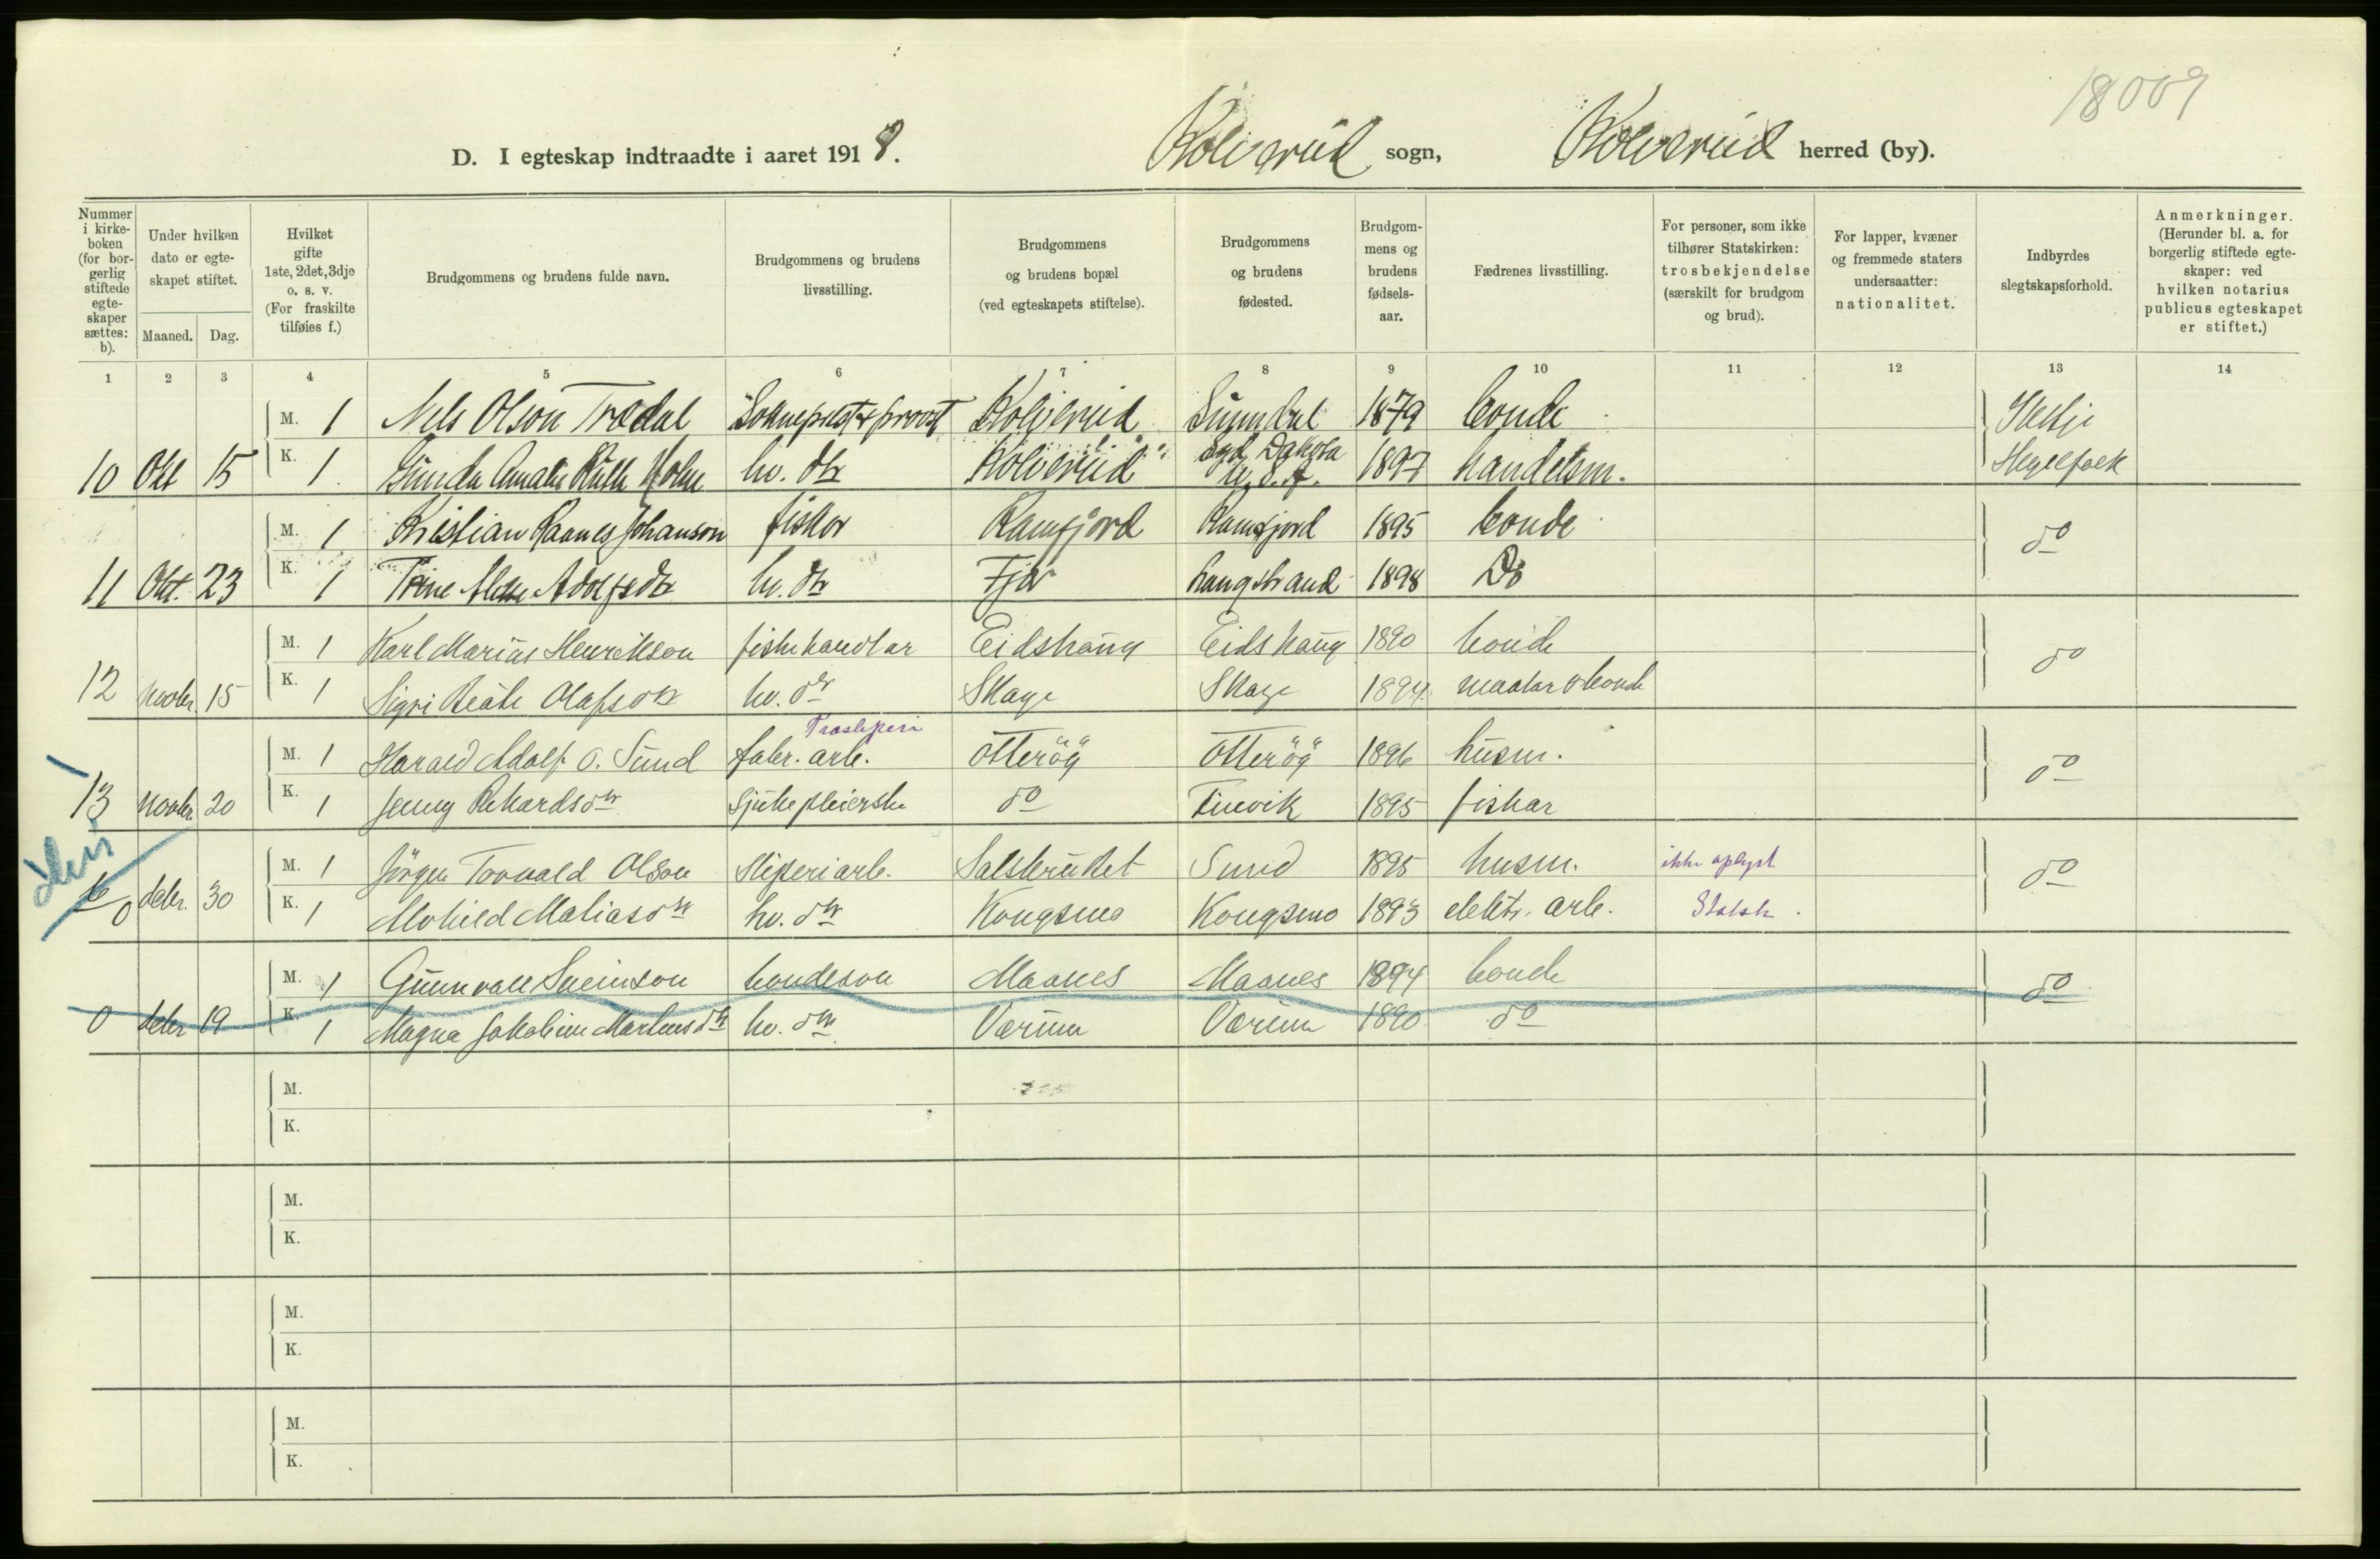 18009
D. I egteskap indtraadte i aaret 1918. Kolvereid sogn, Kolvereid herred (by).
Nummer i kirkeboken (for borgerlig stiftede egteskaper sættes: b).
Under hvilken dato er egteskapet stiftet.
Maaned. Dag.
Hvilket gifte 1ste, 2det, 3dje o. s. v. (For fraskilte tilføies f.)
Brudgommens og brudens fulde navn.
Brudgommens og brudens livsstilling.
Brudgommens og brudens bopæl (ved egteskapets stiftelse).
Brudgommens og brudens fødested.
Brudgommens og brudens fødselsaar.
Fædrenes livsstilling.
For personer, som ikke tilhører Statskirken: trosbekjendelse (særskilt for brudgom og brud).
For lapper, kvæner og fremmede staters undersaatter: nationalitet.
Indbyrdes slegtskapsforhold.
Anmerkninger. (Herunder bl. a. for borgerlig stiftede egteskaper: ved hvilken notarius publicus egteskapet er stiftet.)
1 2 3 4 5 6 7 8 9 10 11 12 13 14
M. 1 Nils Olson Trædal Sokneprest & provst Kolvereid Sunndal 1879 bonde Ikkje
10 Okt 15 K. 1 Gunda Amalie Ruth Holm hv. dtr Kolvereid Syd Dakota U. S. A. 1897 handelsm. Skyldfolk
M. 1 Kristian Johanson fiskar Ramfjord Ramfjord 1895 bonde do
11 Okt. 23 K. 1 Trine Adolfsdtr hv. dtr Langstrand 1898 Do
M. 1 Karl Marius Henrikson fiskehandlar Eidshaug Eidshaug 1890 bonde do
12 novbr 15 K. 1 Sigri Beate Olafsdtr hv. dtr Skage Skage 1894 maalar & bonde
Træsliperi
M. 1 Harald Adolf O. Sund fabr. arb. Otterøy Otterøy 1896 husm. do
13 novbr 20 K. 1 Jenny Rikardsdtr sjukepleierske do Finvik 1895 fiskar
M. 1 Jörgen Torvald Olson Sliperiarb. Salsbruket Sund 1895 husm. ikke oplyst do
0 debr. 30 K. 1 Mohild Maliasdtr hv. dtr Kongsmo Kongsmo 1893 elektr. arb. Statsk.
M. 1 Gunnvall Sveinson bondeson Maanes Maanes 1894 bonde do
0 debr 19 K. 1 Magna Jakobine Martensdtr hv. dtr Værum Værum 1890 do
M.
K.
M.
K.
M.
K.
M.
K.